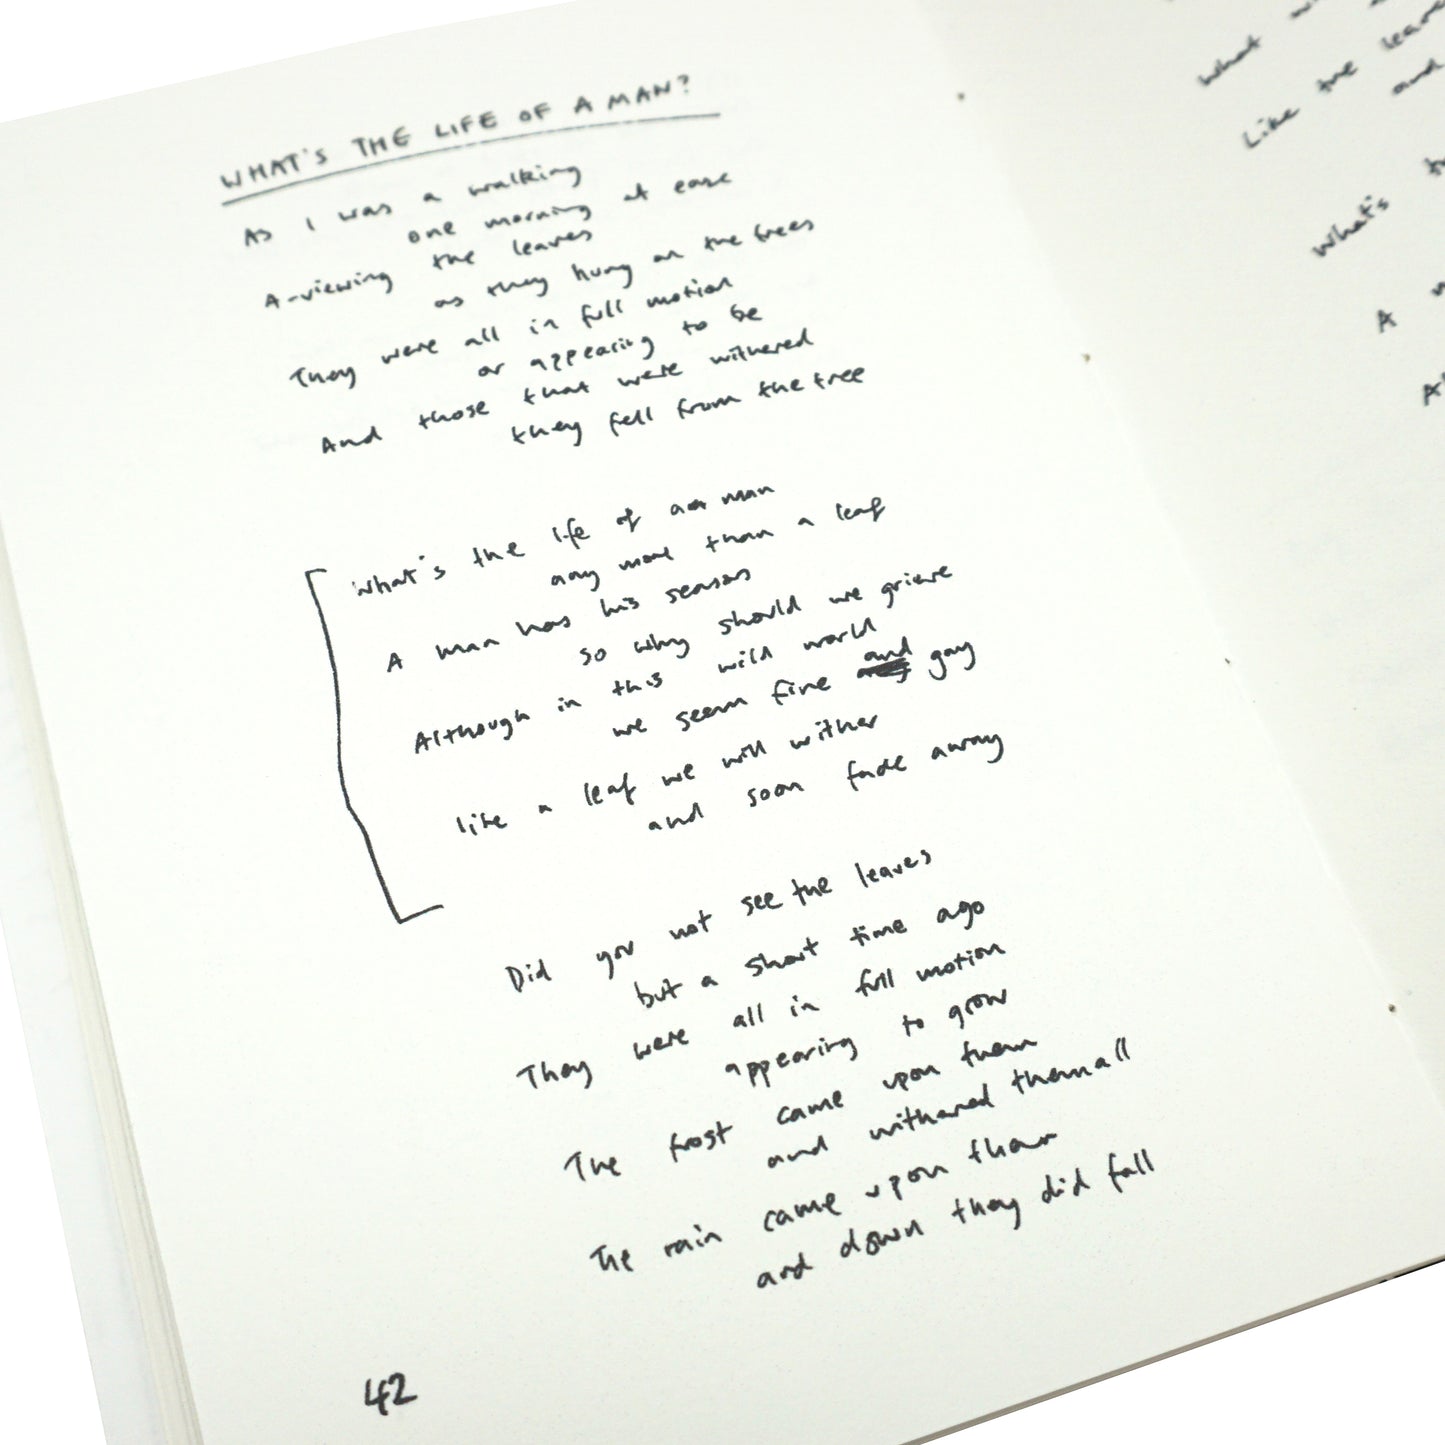 WHAT'S THE LIFE OF A MAN?
As I was a walking
one morning at ease
A-viewing the leaves
as they hung on the trees
They were all in full motion
or appearing to be
And those that were withered
they fell from the tree
What's the life of a man
any more than a leaf
A man has his season
so why should we grieve
Although in this wild world
we seem fine and gay
like a leaf we will wither
and soon fade away
Did you not see the leaves
but a short time ago
They were all in full motion
appearing to grow
The frost came upon them
and withered them all
The rain came upon them
and down they did fall
42
What
Like the leaves
and
What's
A